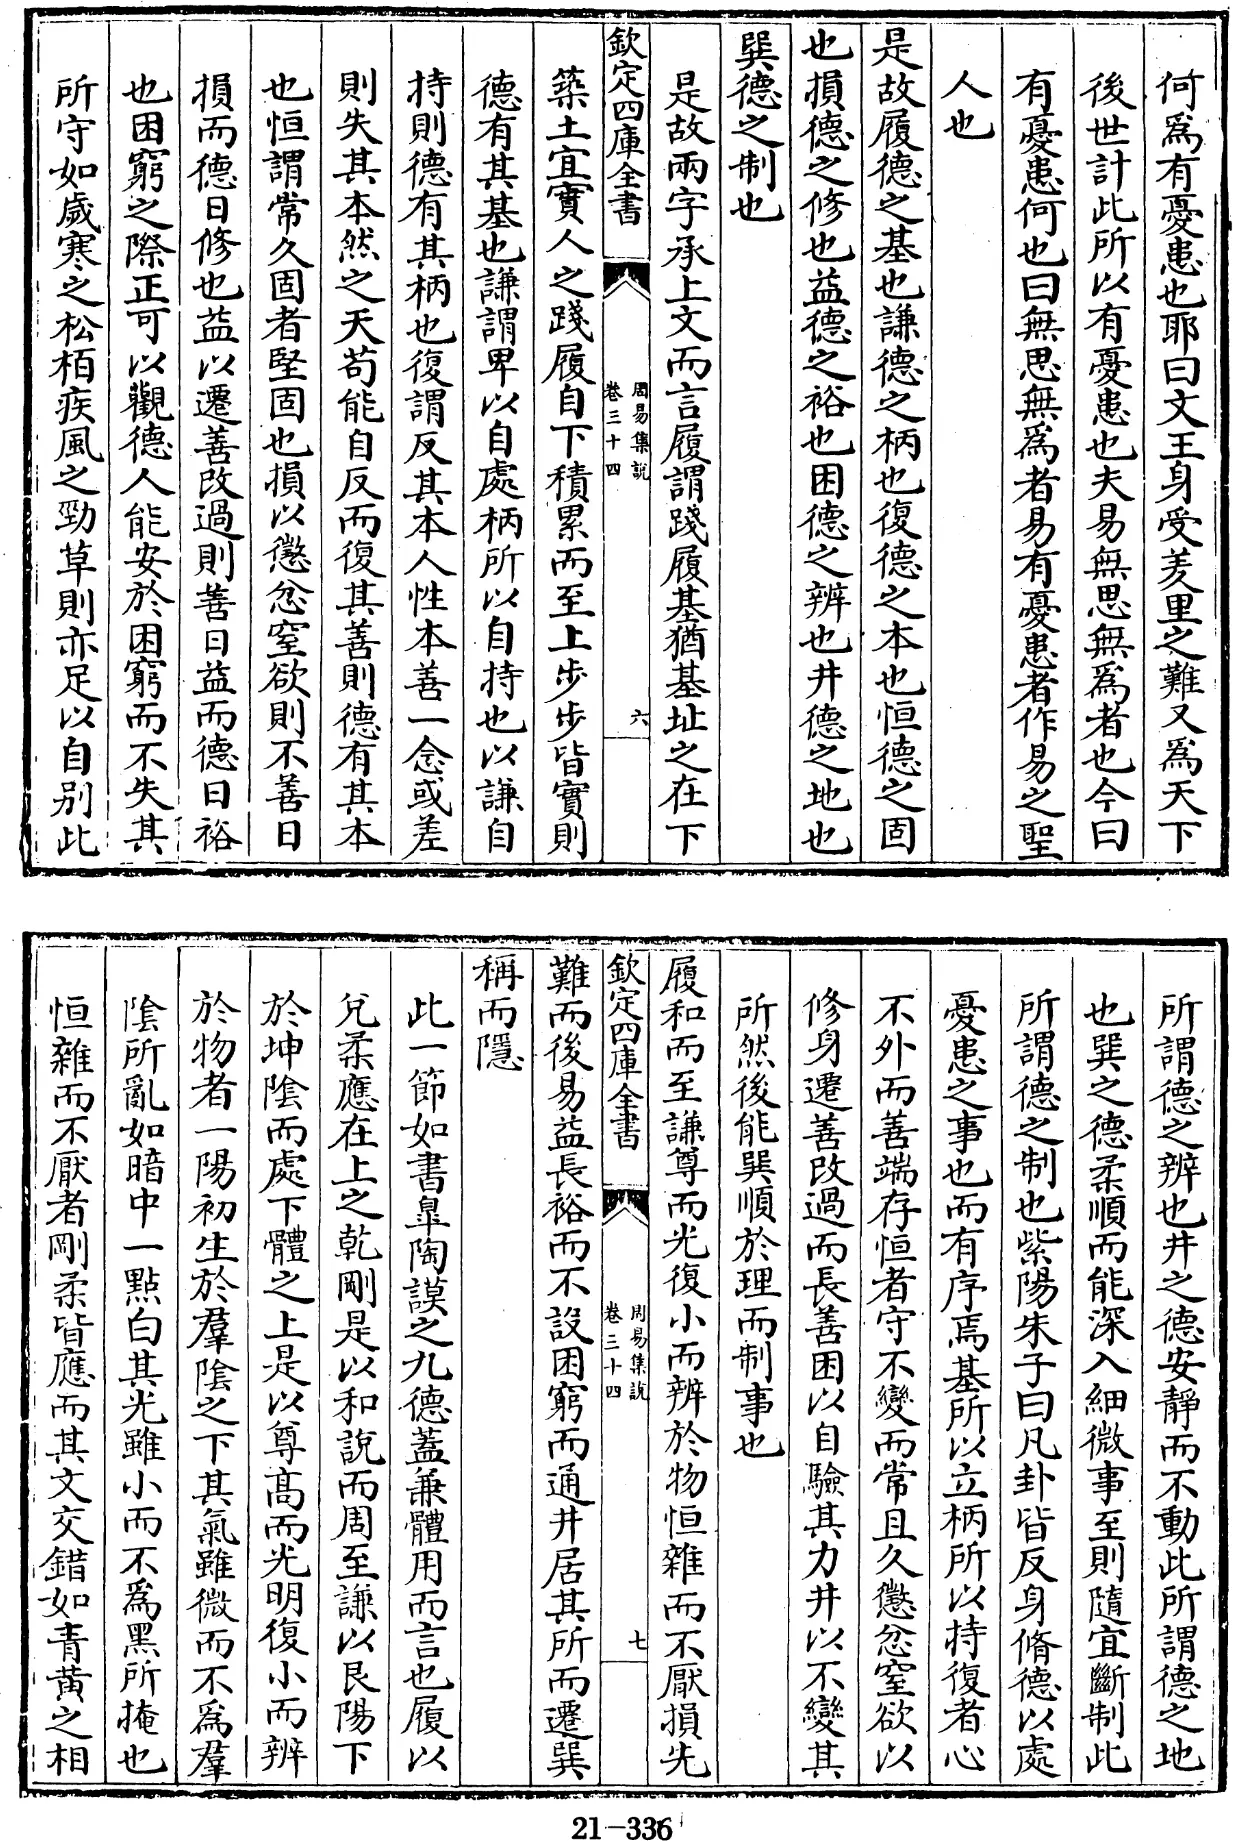 何爲有憂患也耶曰文王身受羑里之難又爲天下
後世計此所以有憂患也夫易無思無爲者也今曰
有憂患何也曰無思無爲者易有憂患者作易之聖
人也
是故履德之基也謙德之柄也復德之本也恒德之固
也損德之修也益德之裕也困德之辨也井德之地也
巽德之制也
是故兩字承上文而言履謂踐履基猶基址之在下
欽定四庫全書
周易集說
卷三十四
六
築土宜實人之踐履自下積累而至上步步皆實則
德有其基也謙謂卑以自處柄所以自持也以謙自
持則德有其柄也復謂反其本人性本善一念或差
則失其本然之天苟能自反而復其善則德有其本
也恒謂常久固者堅固也損以懲忿窒欲則不善日
損而德日修也益以遷善改過則善日益而德日裕
也困窮之際正可以觀德人能安於困窮而不失其
所守如歲寒之松栢疾風之勁草則亦足以自别此
所謂德之辨也井之德安靜而不動此所謂德之地
也巽之德柔順而能深入細微事至則隨宜斷制此
所謂德之制也紫陽朱子曰凡卦皆反身脩德以處
憂患之事也而有序焉基所以立柄所以持復者心
不外而善端存恒者守不變而常且久懲忿窒欲以
修身遷善改過而長善困以自驗其力井以不變其
所然後能巽順於理而制事也
履和而至謙尊而光復小而辨於物恒雜而不厭損先
欽定四庫全書
周易集說
卷三十四
七
難而後易益長裕而不設困窮而通井居其所而遷巽
稱而隱
此一節如書臯陶謨之九德蓋兼體用而言也履以
兌柔應在上之乾剛是以和說而周至謙以艮陽下
於坤陰而處下體之上是以尊高而光明復小而辨
於物者一陽初生於羣陰之下其氣雖微而不爲羣
陰所亂如暗中一點白其光雖小而不爲黑所掩也
恒雜而不厭者剛柔皆應而其文交錯如青黃之相
21-336